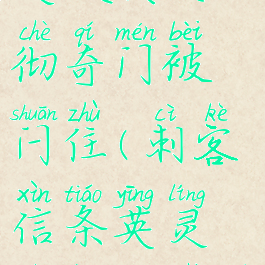 chè qí mén bèi
彻奇门被
shuān zhù cì kè
闩住(刺客
xìn tiáo yīng líng
信条英灵